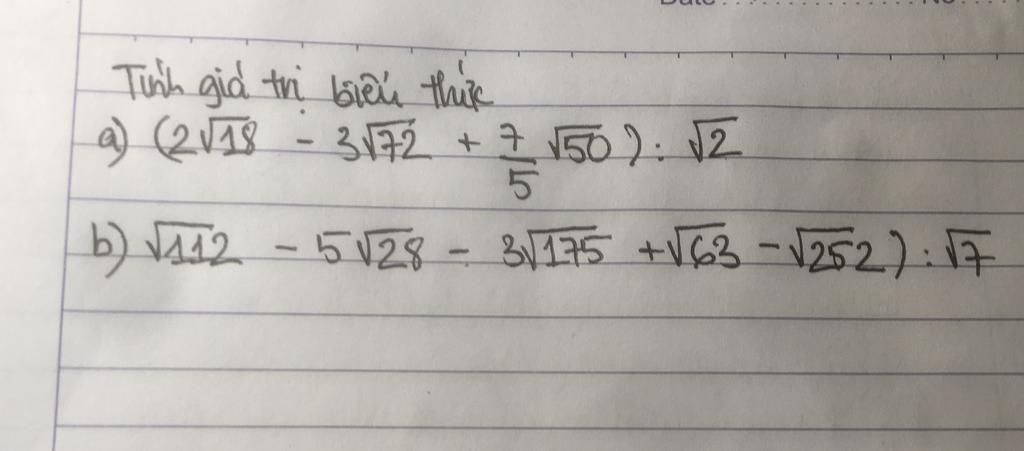 Date ............... No
Tính giá trị biểu thức
a) (2√18 - 3√72 + 7/5 √50) : √2
b) √112 - 5√28 - 3√175 + √63 - √252) : √7